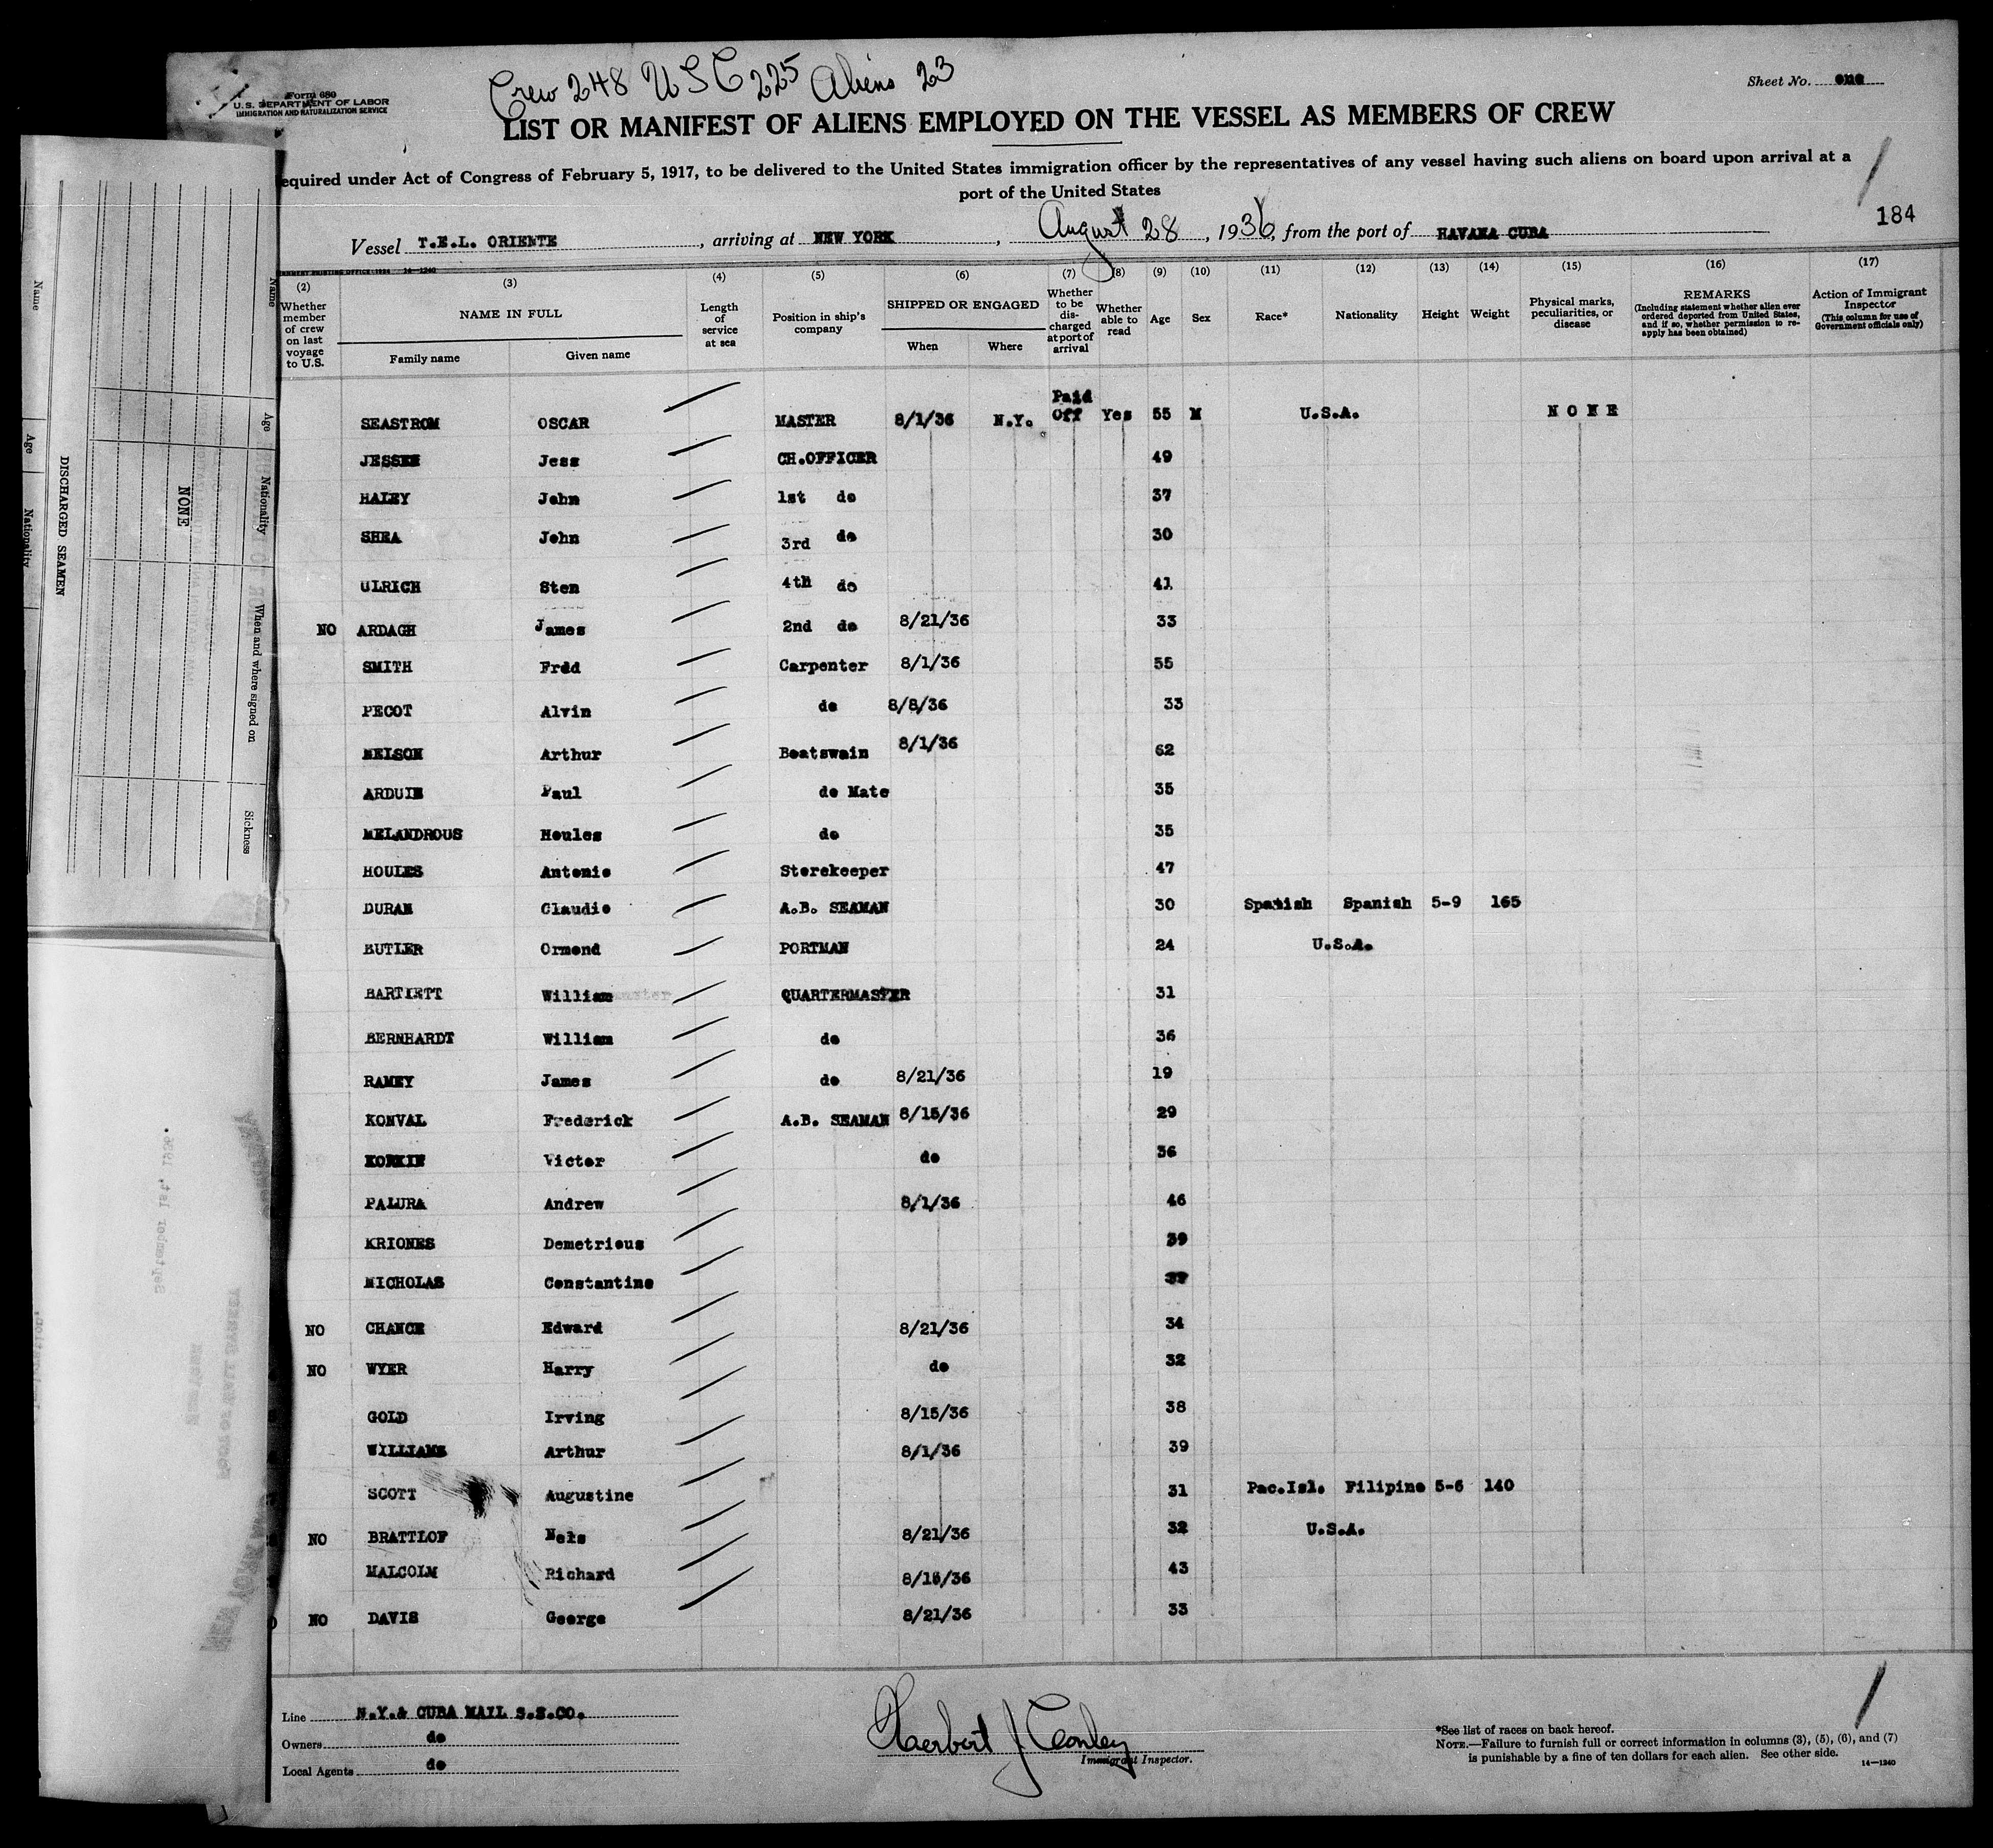 Crew 248 USC 225 Aliens 23
Form 680
U.S. DEPARTMENT OF LABOR
IMMIGRATION AND NATURALIZATION SERVICE
Sheet No. one
LIST OR MANIFEST OF ALIENS EMPLOYED ON THE VESSEL AS MEMBERS OF CREW
equired under Act of Congress of February 5, 1917, to be delivered to the United States immigration officer by the representatives of any vessel having such aliens on board upon arrival at a
port of the United States
184
Vessel T.E.L. ORIENTE, arriving at NEW YORK, August 28, 1936, from the port of HAVANA CUBA
14—1240
(2) (3) (4) (5) (6) (7) (8) (9) (10) (11) (12) (13) (14) (15) (16) (17)
Whether member of crew on last voyage to U.S.
NAME IN FULL
Family name
Given name
Length of service at sea
Position in ship's company
SHIPPED OR ENGAGED
When
Where
Whether to be discharged at port of arrival
Whether able to read
Age
Sex
Race*
Nationality
Height
Weight
Physical marks, peculiarities, or disease
REMARKS
(Including statement whether alien ever ordered deported from United States, and if so, whether permission to reapply has been obtained)
Action of Immigrant Inspector
(This column for use of Government officials only)
SEASTROM OSCAR MASTER 8/1/36 N.Y. Paid Off Yes 55 M U.S.A. NONE
JESSEN Jess CH.OFFICER 49
HALEY John 1st do 37
SHEA John 3rd do 30
ULRICH Sten 4th do 41
NO ARDAGH James 2nd do 8/21/36 33
SMITH Fred Carpenter 8/1/36 55
PECOT Alvin do 8/8/36 33
NELSON Arthur Boatswain 8/1/36 62
ARDUIN Paul do Mate 35
MELANDROUS Houles do 35
HOULES Antonio Storekeeper 47
DURAN Claudio A.B. SEAMAN 30 Spanish Spanish 5-9 165
BUTLER Ormond PORTMAN 24 U.S.A.
BARTLETT William QUARTERMASTER 31
BERNHARDT William do 36
RAMEY James do 8/21/36 19
KONVAL Frederick A.B. SEAMAN 8/15/36 29
KORKIN Victor do 36
PALURA Andrew 8/1/36 46
KRIONES Demetrious 39
NICHOLAS Constantine
NO CHANCE Edward 8/21/36 34
NO WYER Harry do 32
GOLD Irving 8/15/36 38
WILLIAMS Arthur 8/1/36 39
SCOTT Augustine 31 Pac.Isl. Filipino 5-6 140
NO BRATTLOF Nels 8/21/36 32 U.S.A.
MALCOLM Richard 8/15/36 43
NO DAVIS George 8/21/36 33
Line N.Y.& CUBA MAIL S.S.CO.
Owners do
Local Agents do
Herbert J Conley
Immigrant Inspector.
*See list of races on back hereof.
NOTE.—Failure to furnish full or correct information in columns (3), (5), (6), and (7)
is punishable by a fine of ten dollars for each alien. See other side.
14—1240
DISCHARGED SEAMEN
NONE
Name
Age
Nationality
When and where signed on
Sickness
Name
Age
Nationality
September 1st, 1936.